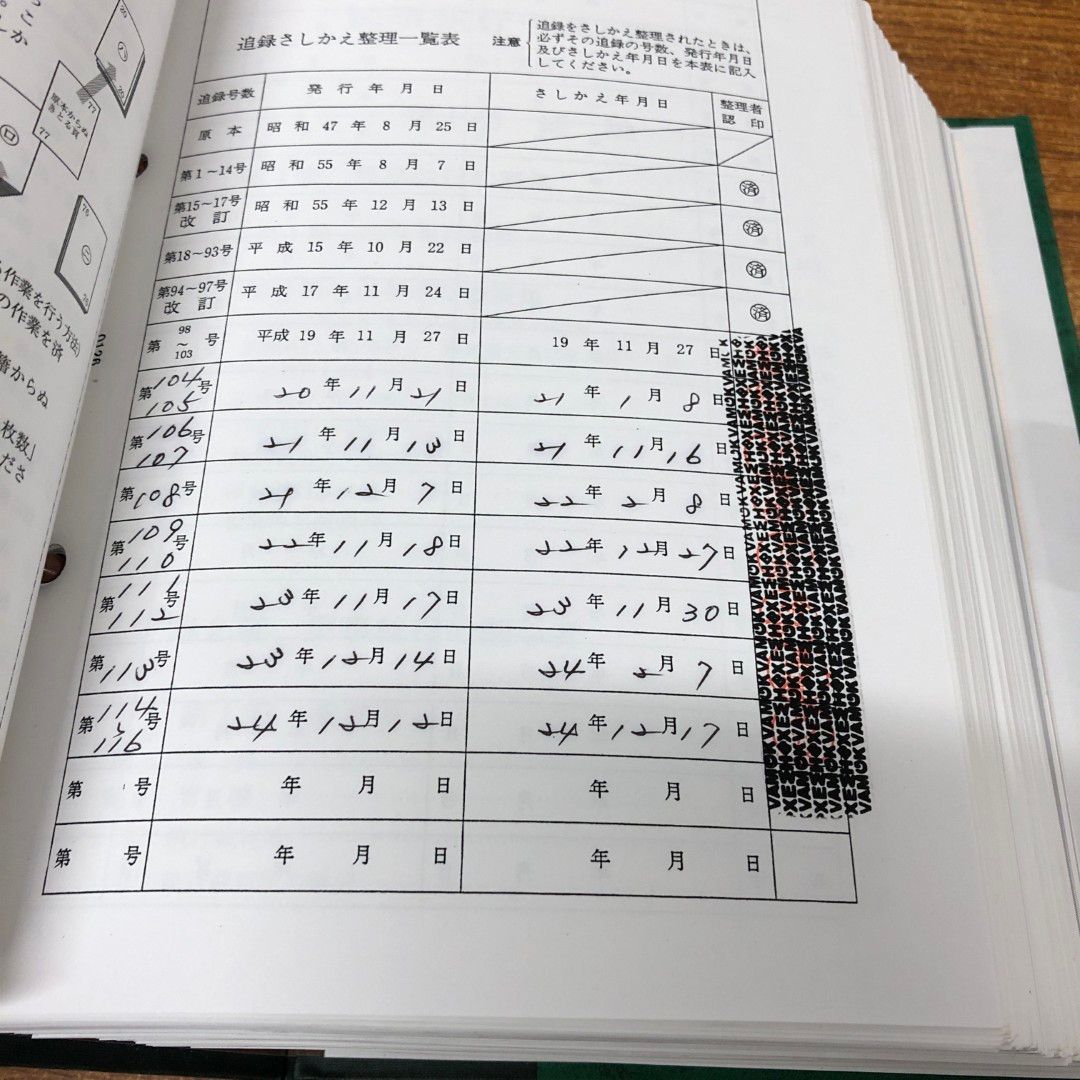 追録さしかえ整理一覧表
注意
追録をさしかえ整理されたときは、
必ずその追録の号数、発行年月日
及びさしかえ年月日を本表に記入
してください。
追録号数 発行年月日 さしかえ年月日 整理者認印
原本 昭和47年8月25日
第1～14号 昭和55年8月7日 済
第15～17号改訂 昭和55年12月13日 済
第18～93号 平成15年10月22日 済
第94～97号改訂 平成17年11月24日 済
第98～103号 平成19年11月27日 19年11月27日
第104 105号 20年11月21日 21年1月8日
第106 107号 21年11月13日 21年11月16日
第108号 21年12月7日 22年2月8日
第109 110号 22年11月18日 22年12月27日
第111 112号 23年11月17日 23年11月30日
第113号 23年12月14日 24年2月7日
第114～116号 24年12月12日 24年12月17日
第 号 年 月 日 年 月 日
第 号 年 月 日 年 月 日
20
イ
20
77
原本からぬ
きとる頁
77
ロ
76
ニ
20
作業を行う方法)
の作業を済
籍からぬ
枚数」
ださ